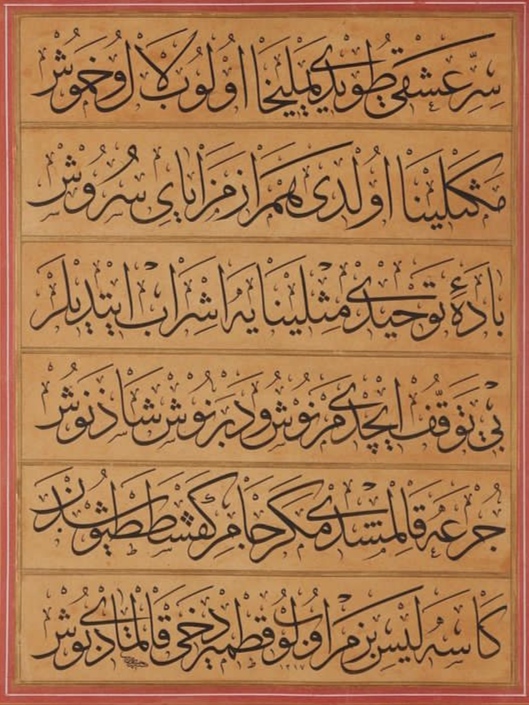 سِرِّ عشقی طویدی یملیخا اولوب لال و خموش
مكثلینا اولدی همراز مزایای سروش
بادۀ توحیدی مثلینایه اشراب ایتدیلر
بی توقّف ایچدی مرنوش و دبرنوش شاذنوش
جرعه قالمشدی مگر جام كفشططیوشدن
كاسه لیس بزم اولوب قطمیر دخی قالمادی نوش
١٣١٧